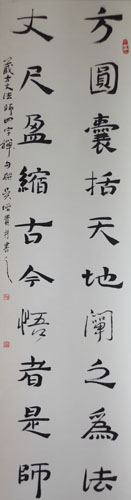 方圓囊括天地闡之為法
丈尺盈縮古今悟者是師